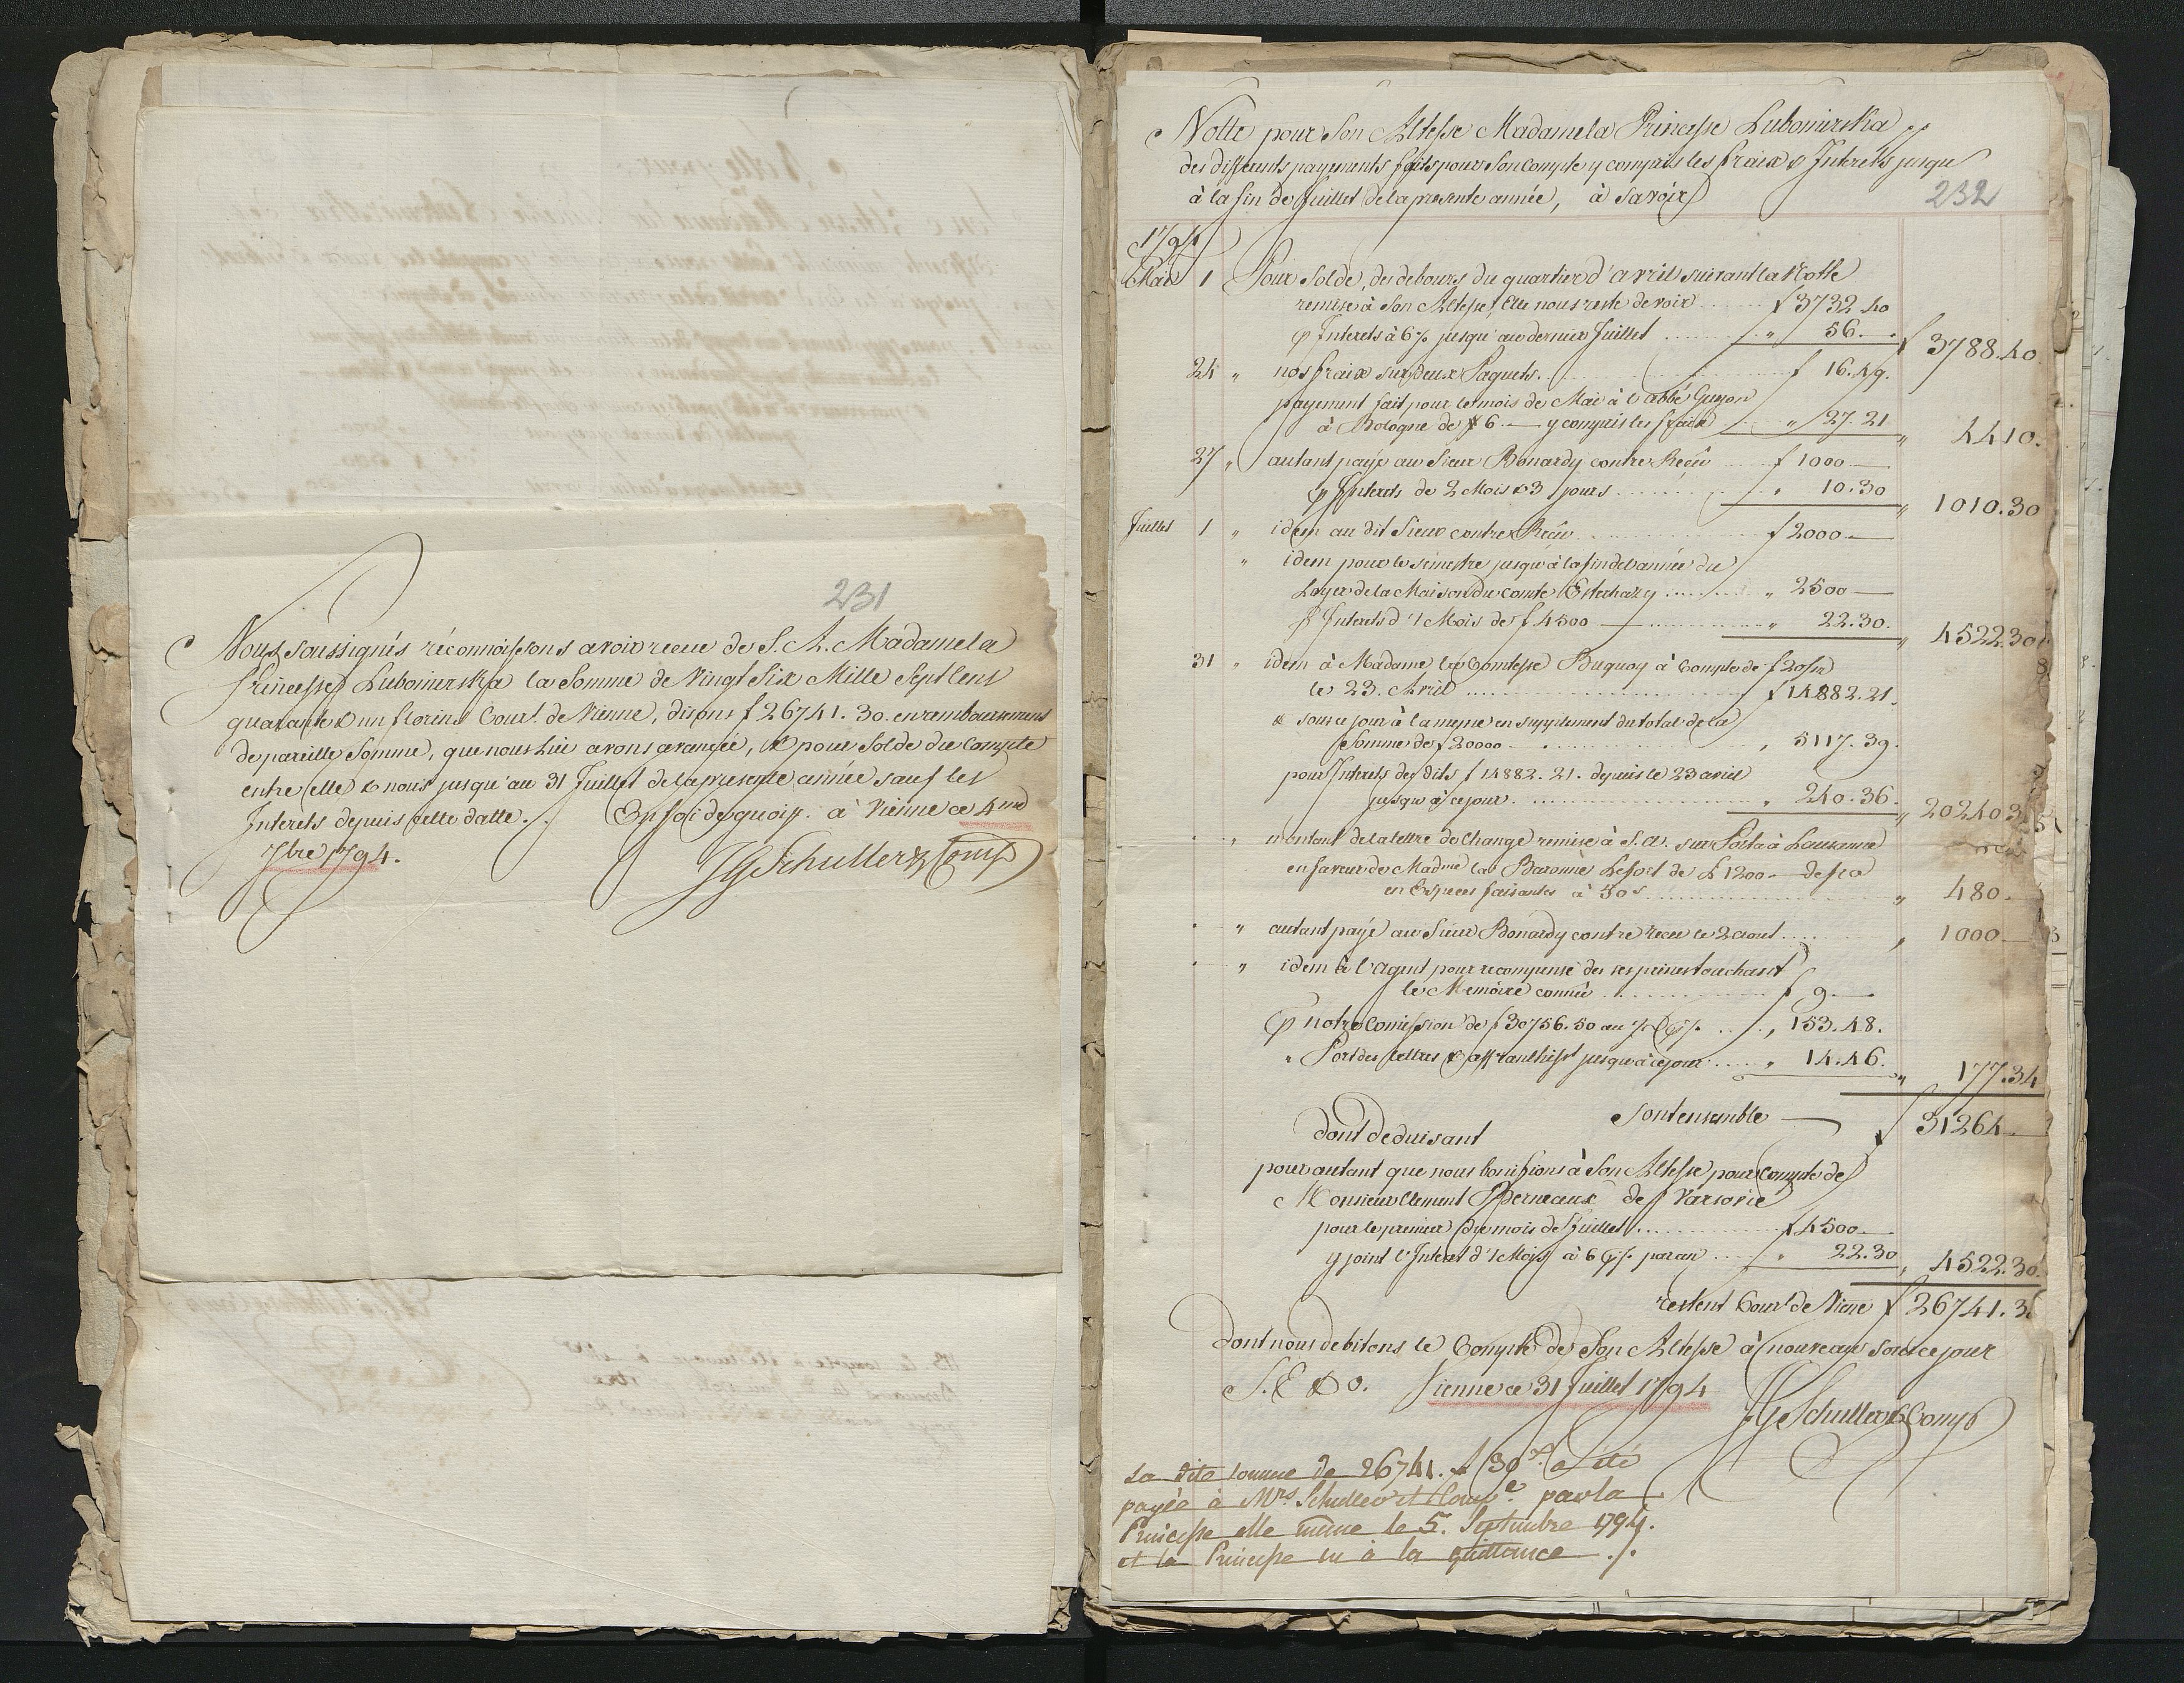 231
Nous soussignés réconnoissons avoir reçue de S. A. Madame la
Princesse Lubomirska la Somme de Vingt Six Mille Sept Cent
quarante & un florins Cour.t de Vienne, disons f 26741. 30. en remboursement
de pareille Somme, que nous lui avons avancée, & pour Solde du Compte
entre elle & nous jusqu'au 31 Juillet de la presente année sauf les
Interets depuis cette datte. En foi de quoi à Vienne ce 4
7bre 1794.
JG Schuller & Comp
Notte pour Son Altesse Madame la Princesse Lubomirska
des differents payements faits pour Son Compte y compris les fraix & Interets jusqu'
à la fin de Juillet de la presente année, à savoir
232
1794
Mai 1 Pour Solde, des debours du quartier d'avril suivant la Notte
remise à Son Altesse, Elle nous reste devoir f 3732 40
p Interets à 6% jusqu'au dernier Juillet " 56. f 3788.40
24 " nos fraix sur deux Paquets. f 16.49.
payement fait pour le mois de Mai à l'abbé Guyon
à Bologne de # 6.— y compris les fraix " 27.21 " 44 10.
27 " autant payé au Sieur Bonardy contre Recû f 1000 —
p Interets de 2 Mois & 3 jours " 10.30 " 1010.30
Juillet 1 " idem au dit Sieur contre Recû f 2000 —
" idem pour le semestre jusqu'à la fin de l'année du
Loyer de la Maison du comte Esterhazy " 2500 —
p Interets d'1 Mois de f 4500 — " 22.30. " 4522.30
31 " idem à Madame la Comtesse Buquoy à Compte de f 20/m
le 23. Avril f 14882.21.
& sous ce jour à la meme en supplement du total de la
Somme de f 20000 — " 5117.39.
pour Interets des dits f 14882.21. depuis le 23 avril
jusqu'à ce jour. " 240.36. " 20240 3
" montant de la lettre de Change remise à S.A. sur Porta à Lausanne
en faveur de Madme la Baronne Lefort de £ 1200 —
en Especes faisantes à 50s " 480.
" autant payé au Sieur Bonardy contre recu le 2 aout " 1000 —
" idem à l'agent pour recompense des ses peines touchant
le Memoire connu f 9.—
p notre Comission de f 30756.50 au ½ p% " 153.48.
" Port des lettres & affranchisst jusqu'à ce jour " 14.46. " 177.34
Sont ensemble — f 31264 —
dont deduisant
pour autant que nous bonifions à Son Altesse pour Compte de
Monsieur Clement Berneaux de Varsovie
pour le premier du mois de Juillet f 4500 —
y joint l'Interet d'1 Mois à 6 p% par an " 22.30 " 4522.30.
restent Cour.t de Vienne f 26741.3
dont nous debitons le Compte de Son Altesse à nouveau sous ce jour
S. E & O. Vienne ce 31 Juillet 1794
JG Schuller & Comp
La dite somme de 26741. f 30 x. a été
payée à Mrs. Schuller et Compe. par la
Princesse elle même le 5. Septembre 1794.
et la Princesse en à la quittance ./.